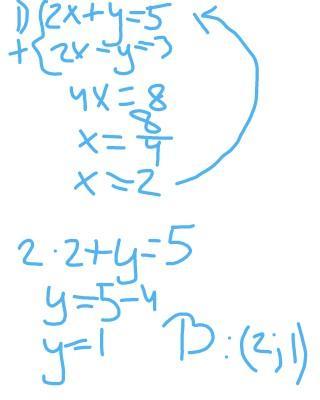 1) { 2x+y=5
+ { 2x-y=3
4x=8
x=8/4
x=2
2·2+y=5
y=5-4
y=1
В:(2;1)